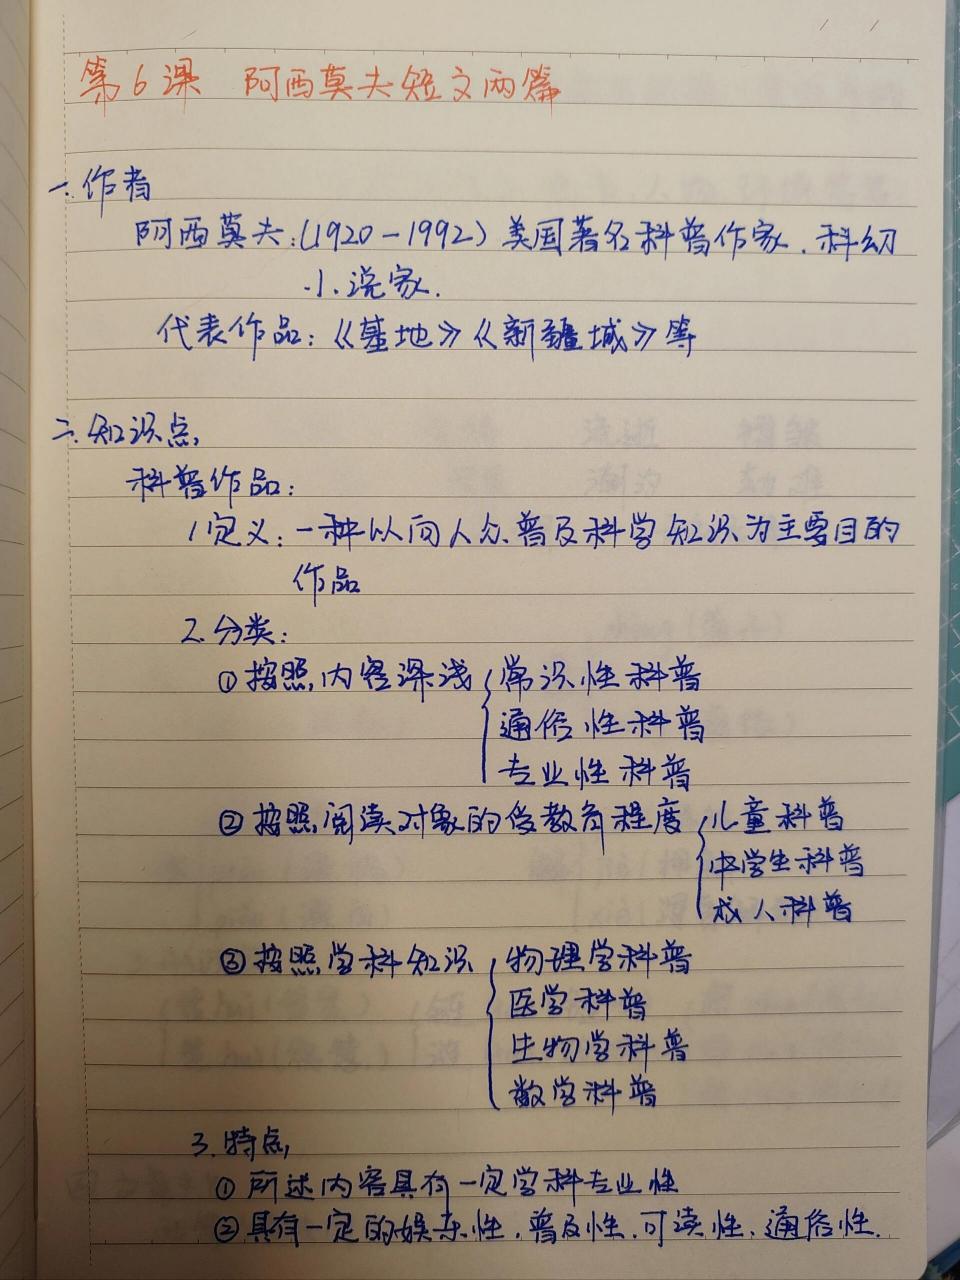 第6课 阿西莫夫短文两篇
一.作者
阿西莫夫:(1920-1992)美国著名科普作家、科幻
小说家.
代表作品:《基地》《新疆域》等
二.知识点
科普作品:
1定义:一种以向人众普及科学知识为主要目的
作品
2.分类:
①按照内容深浅 常识性科普
通俗性科普
专业性科普
②按照阅读对象的受教育程度 儿童科普
中学生科普
成人科普
③按照学科知识 物理学科普
医学科普
生物学科普
数学科普
3.特点
①所述内容具有一定学科专业性
②具有一定的娱乐性、普及性、可读性、通俗性.